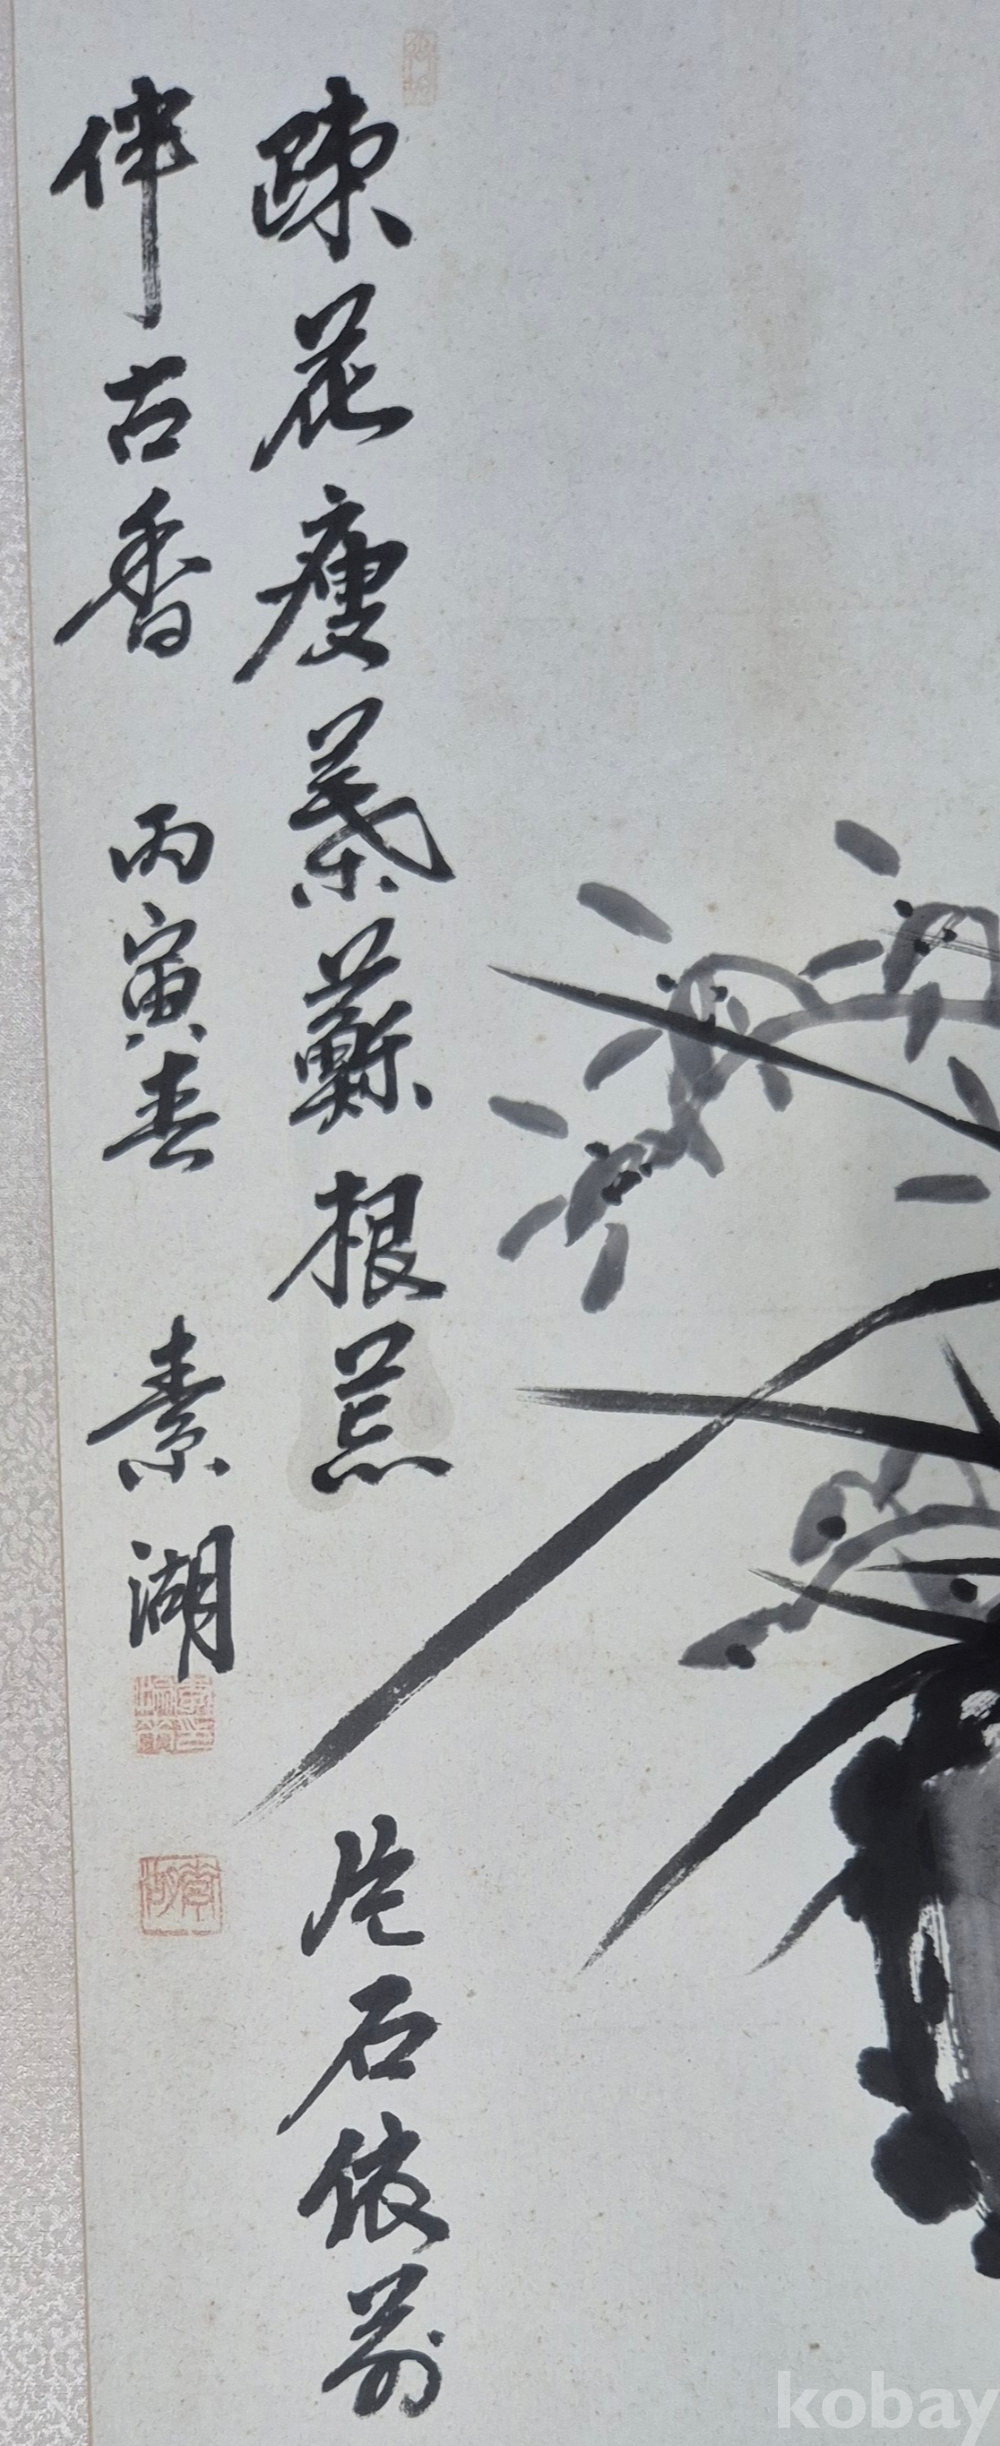 疎花瘦葉根荒 片石依前
伴古香 丙寅春 素湖
kobay